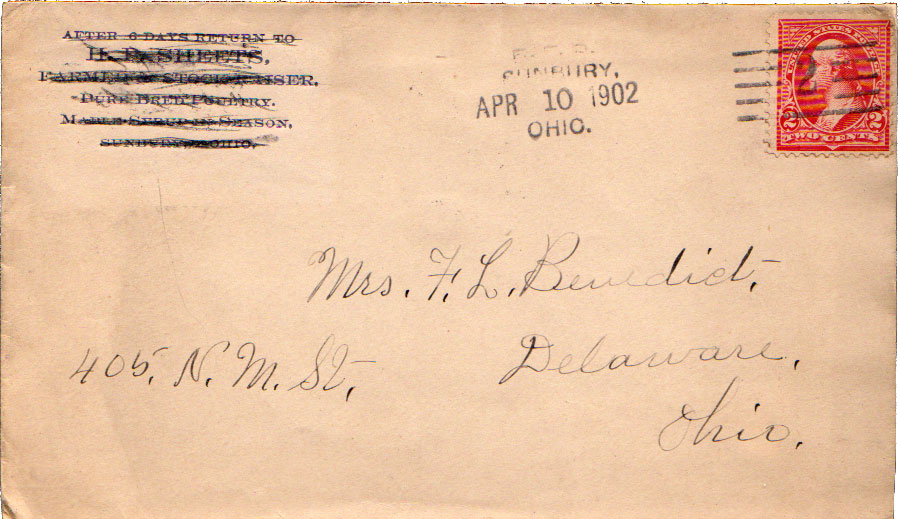 AFTER 6 DAYS RETURN TO
H. E. SHEETS,
FARMER & STOCK RAISER.
PURE BRED POULTRY.
MAPLE SYRUP IN SEASON.
SUNBURY, OHIO.
R.F.D.
SUNBURY,
APR 10 1902
OHIO.
UNITED STATES POSTAGE
2 2
TWO CENTS
Mrs. F. L. Benedict,
405, N. M. St,
Delaware,
Ohio.